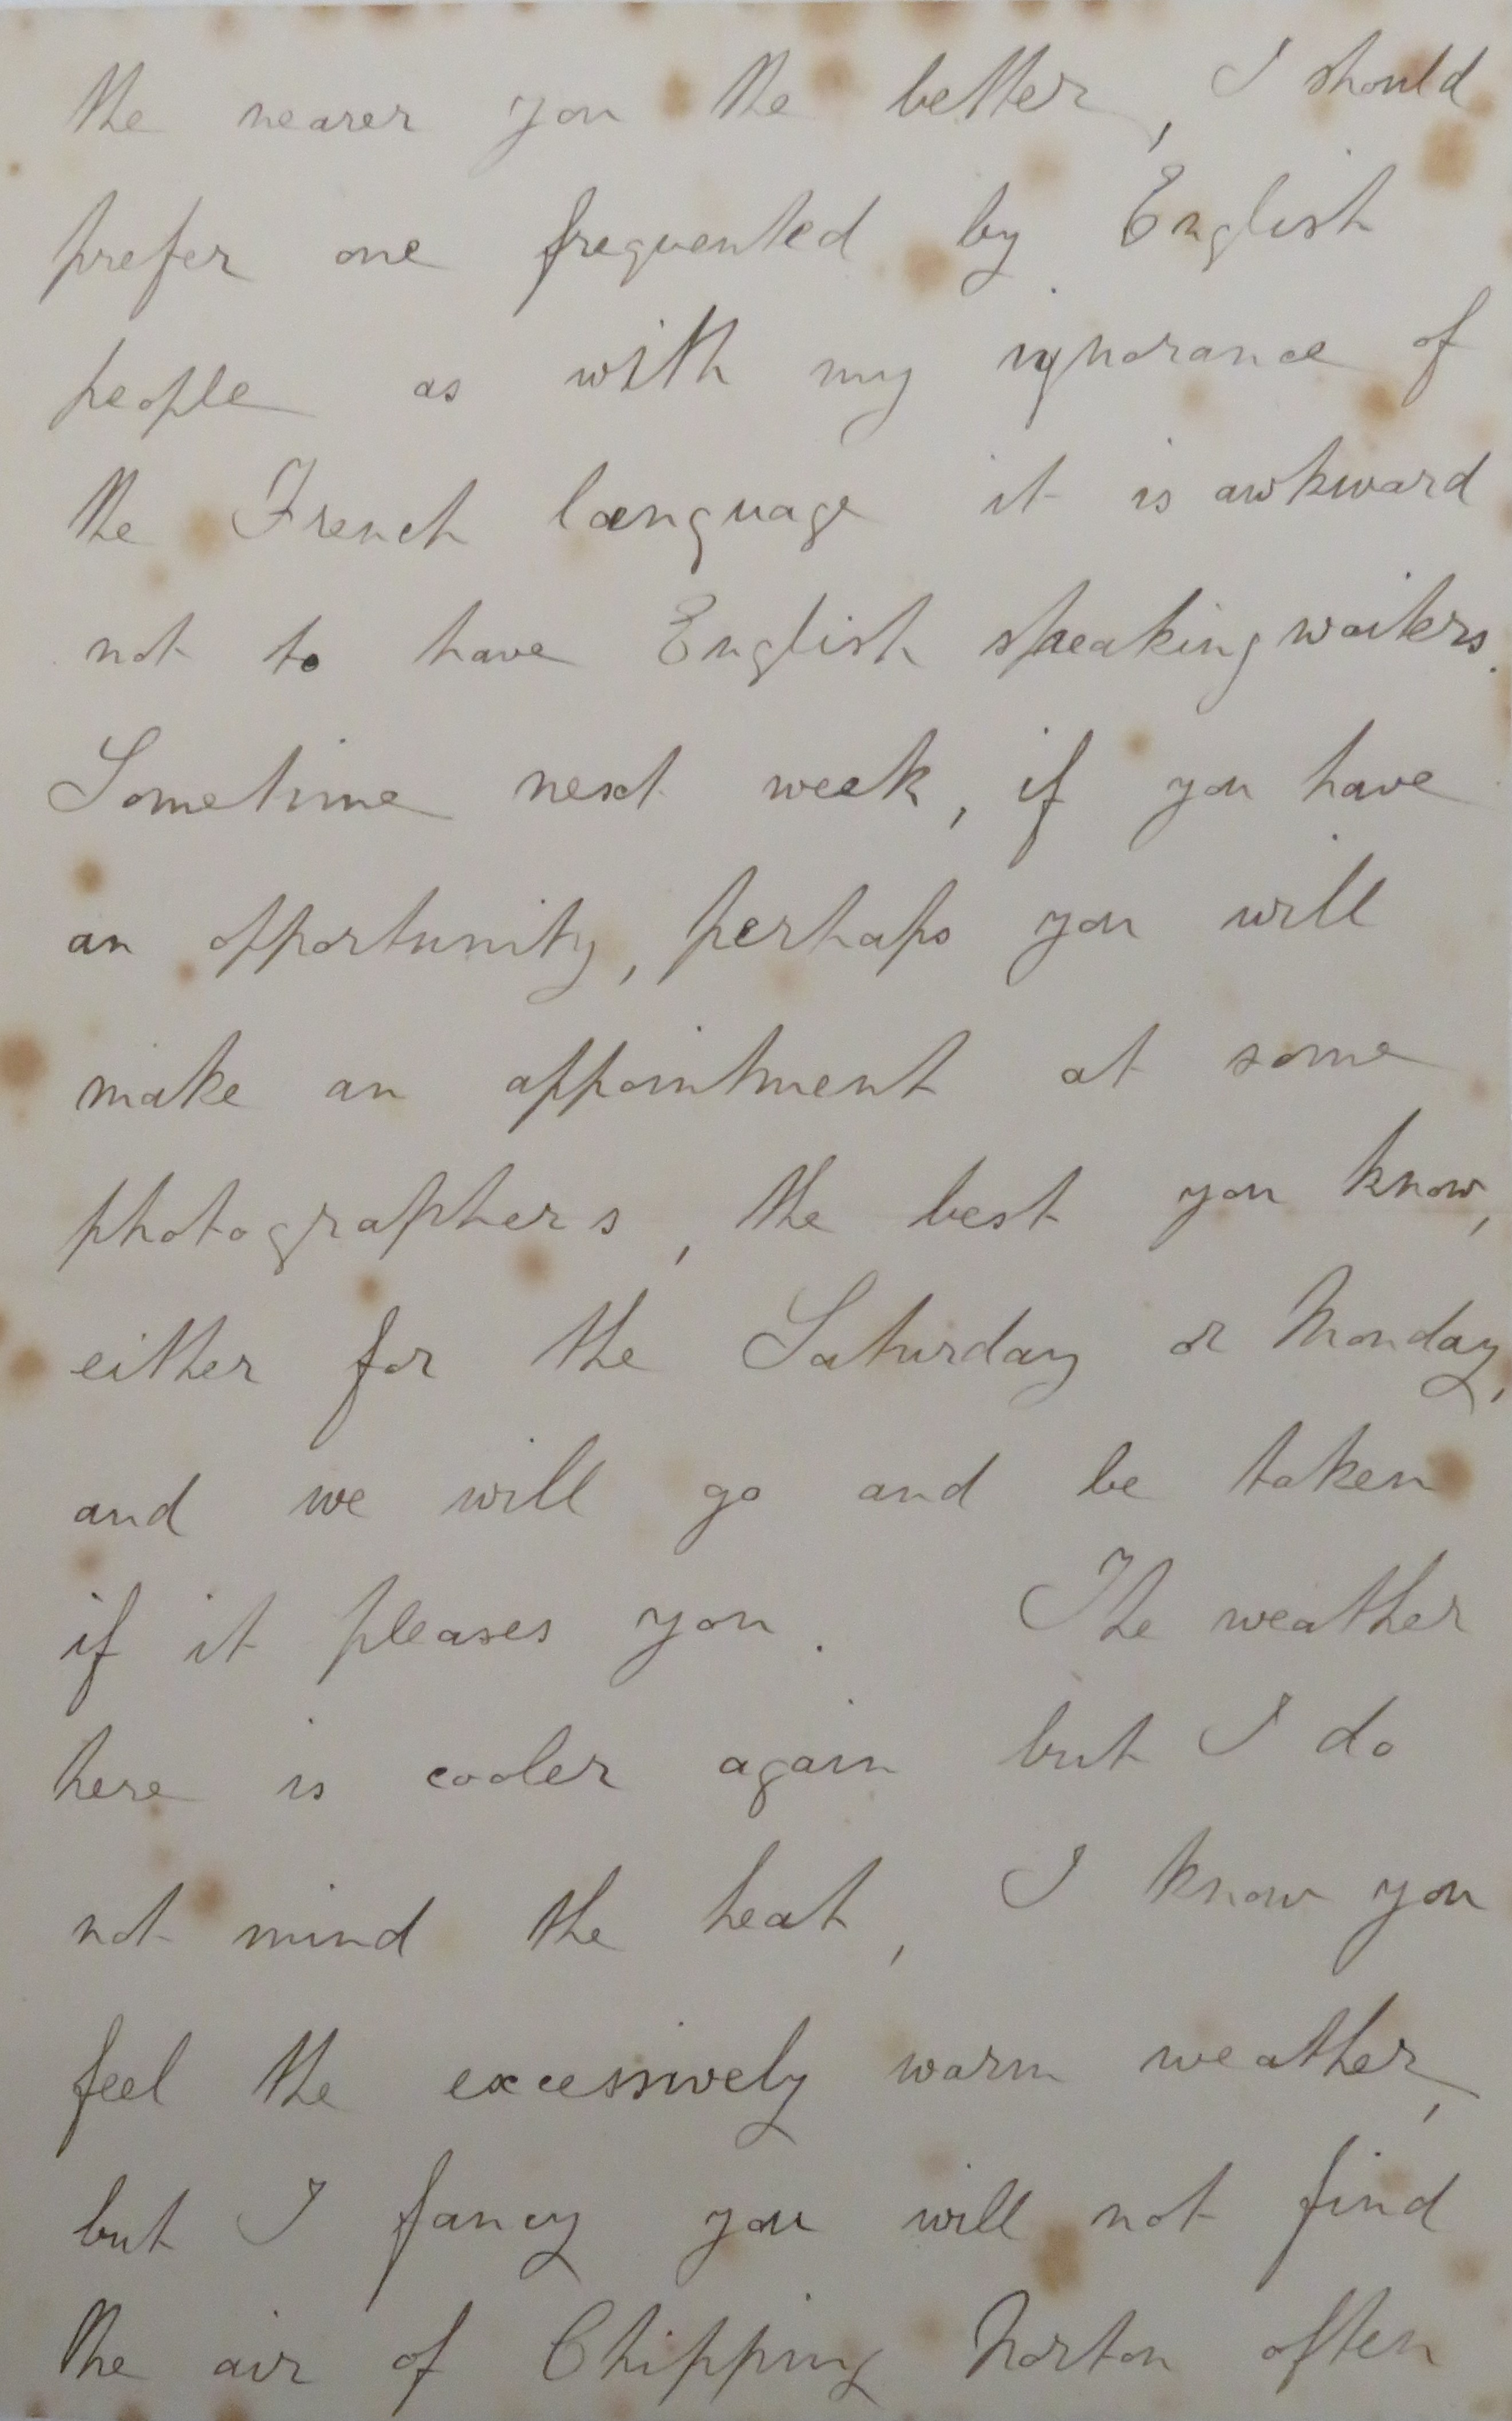 the nearer you the better, I should
prefer one frequented by English
people as with my ignorance of
the French language it is awkward
not to have English speaking waiters.
Sometime next week, if you have
an opportunity, perhaps you will
make an appointment at some
photographers, the best you know,
either for the Saturday or Monday,
and we will go and be taken
if it pleases you. The weather
here is cooler again but I do
not mind the heat, I know you
feel the excessively warm weather,
but I fancy you will not find
the air of Chipping Norton often